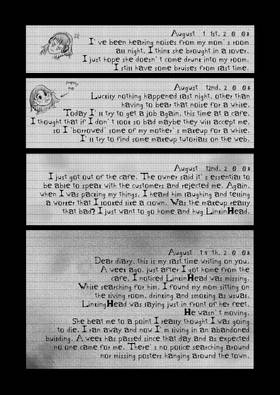 August 1 1st, 2 0 0X
I've been hearing noises from my mom's room
all night. I think she brought in a lover.
I just hope she doesn't come drunk into my room.
I still have some bruises from last time.
August 12nd, 2 0 0X
Luckily nothing happened last night, other than
having to bear that noise for a while.
Today I'll try to get a job again, this time at a cafe.
I thought that if I don't look so bad maybe they will accept me,
so I 'borrowed' some of my mother's makeup for a while.
I'll try to find some makeup tutorials on the web.
August 12nd, 2 0 0X
I just got out of the cafe. The owner said it's essential to
be able to speak with the customers and rejected me. Again.
when I was packing my things, I heard him laughing and telling
a worker that I looked like a clown. Was the makeup really
that bad? I just want to go home and hug LinkinHead.
August 19th, 2 0 0X
Dear diary, this is my last time writing on you.
A week ago, just after I got home from the
cafe, I noticed LinkinHead was missing.
While searching for him, I found my mom sitting on
the living room, drinking and smoking as usual.
LinkingHead was laying just in front of her feet.
He wasn't moving.
She beat me to a point I really thought I was going
to die. I ran away and now I'm living in an abandoned
building. A week has passed since that day and as expected
no one came for me. There's no police searching around
nor missing posters hanging around the town.